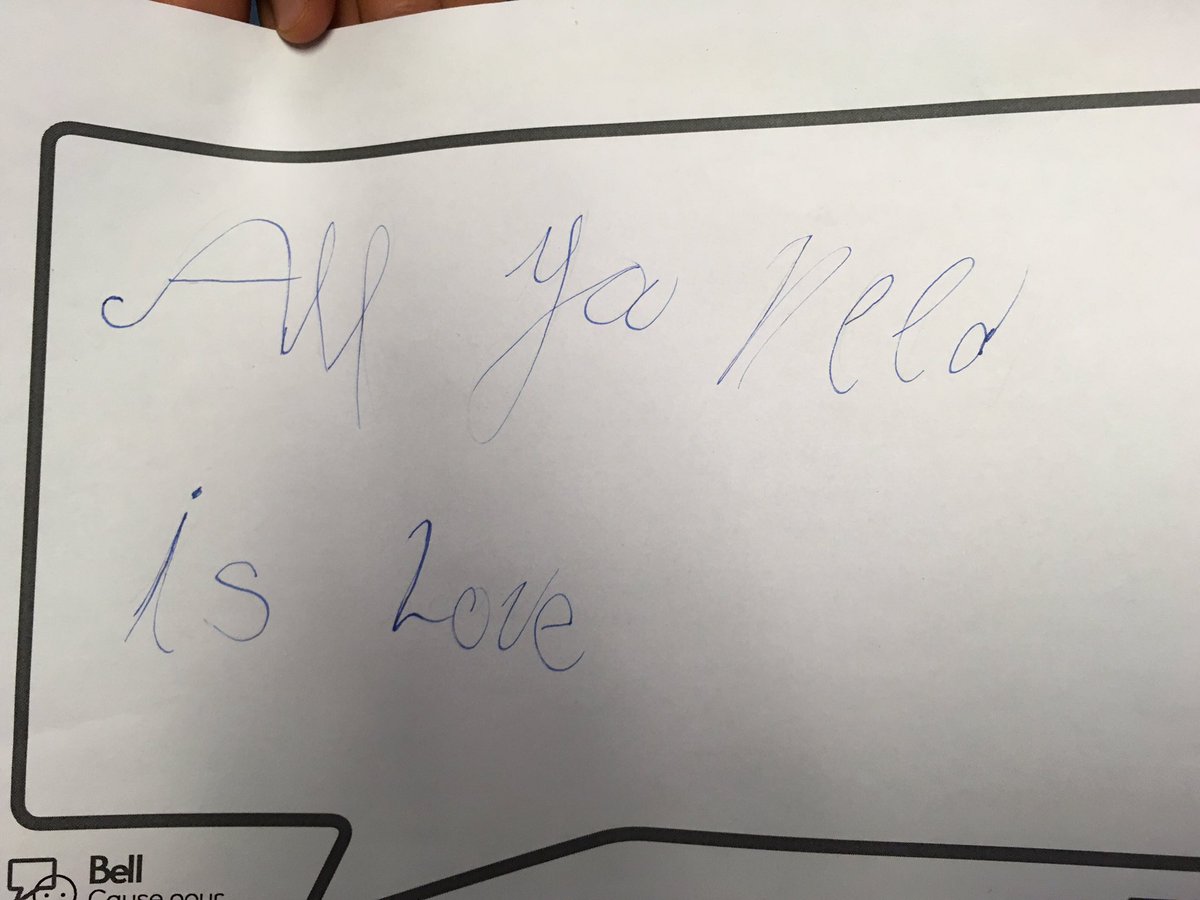 All ya need
is Love
Bell
Cause pour